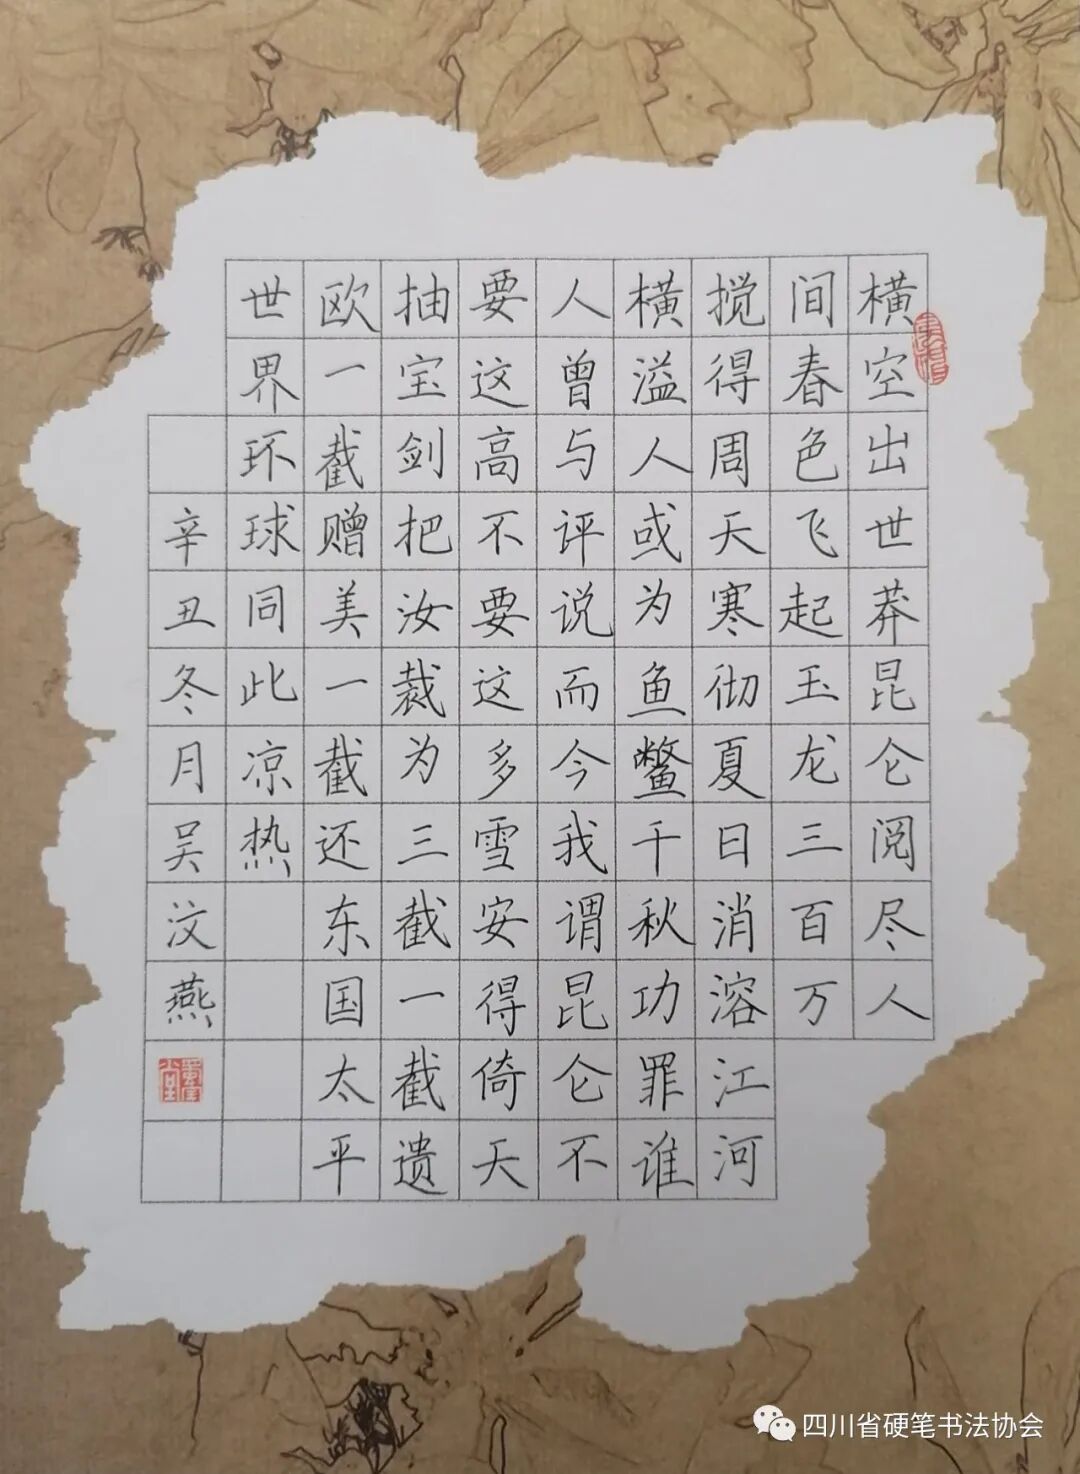 横空出世莽昆仑阅尽人
间春色飞起玉龙三百万
搅得周天寒彻夏日消溶江河
横溢人或为鱼鳖千秋功罪谁
人曾与评说而今我谓昆仑不
要这高不要这多雪安得倚天
抽宝剑把汝裁为三截一截遗
欧一截赠美一截还东国太平
世界环球同此凉热
辛丑冬月吴汶燕
四川省硬笔书法协会